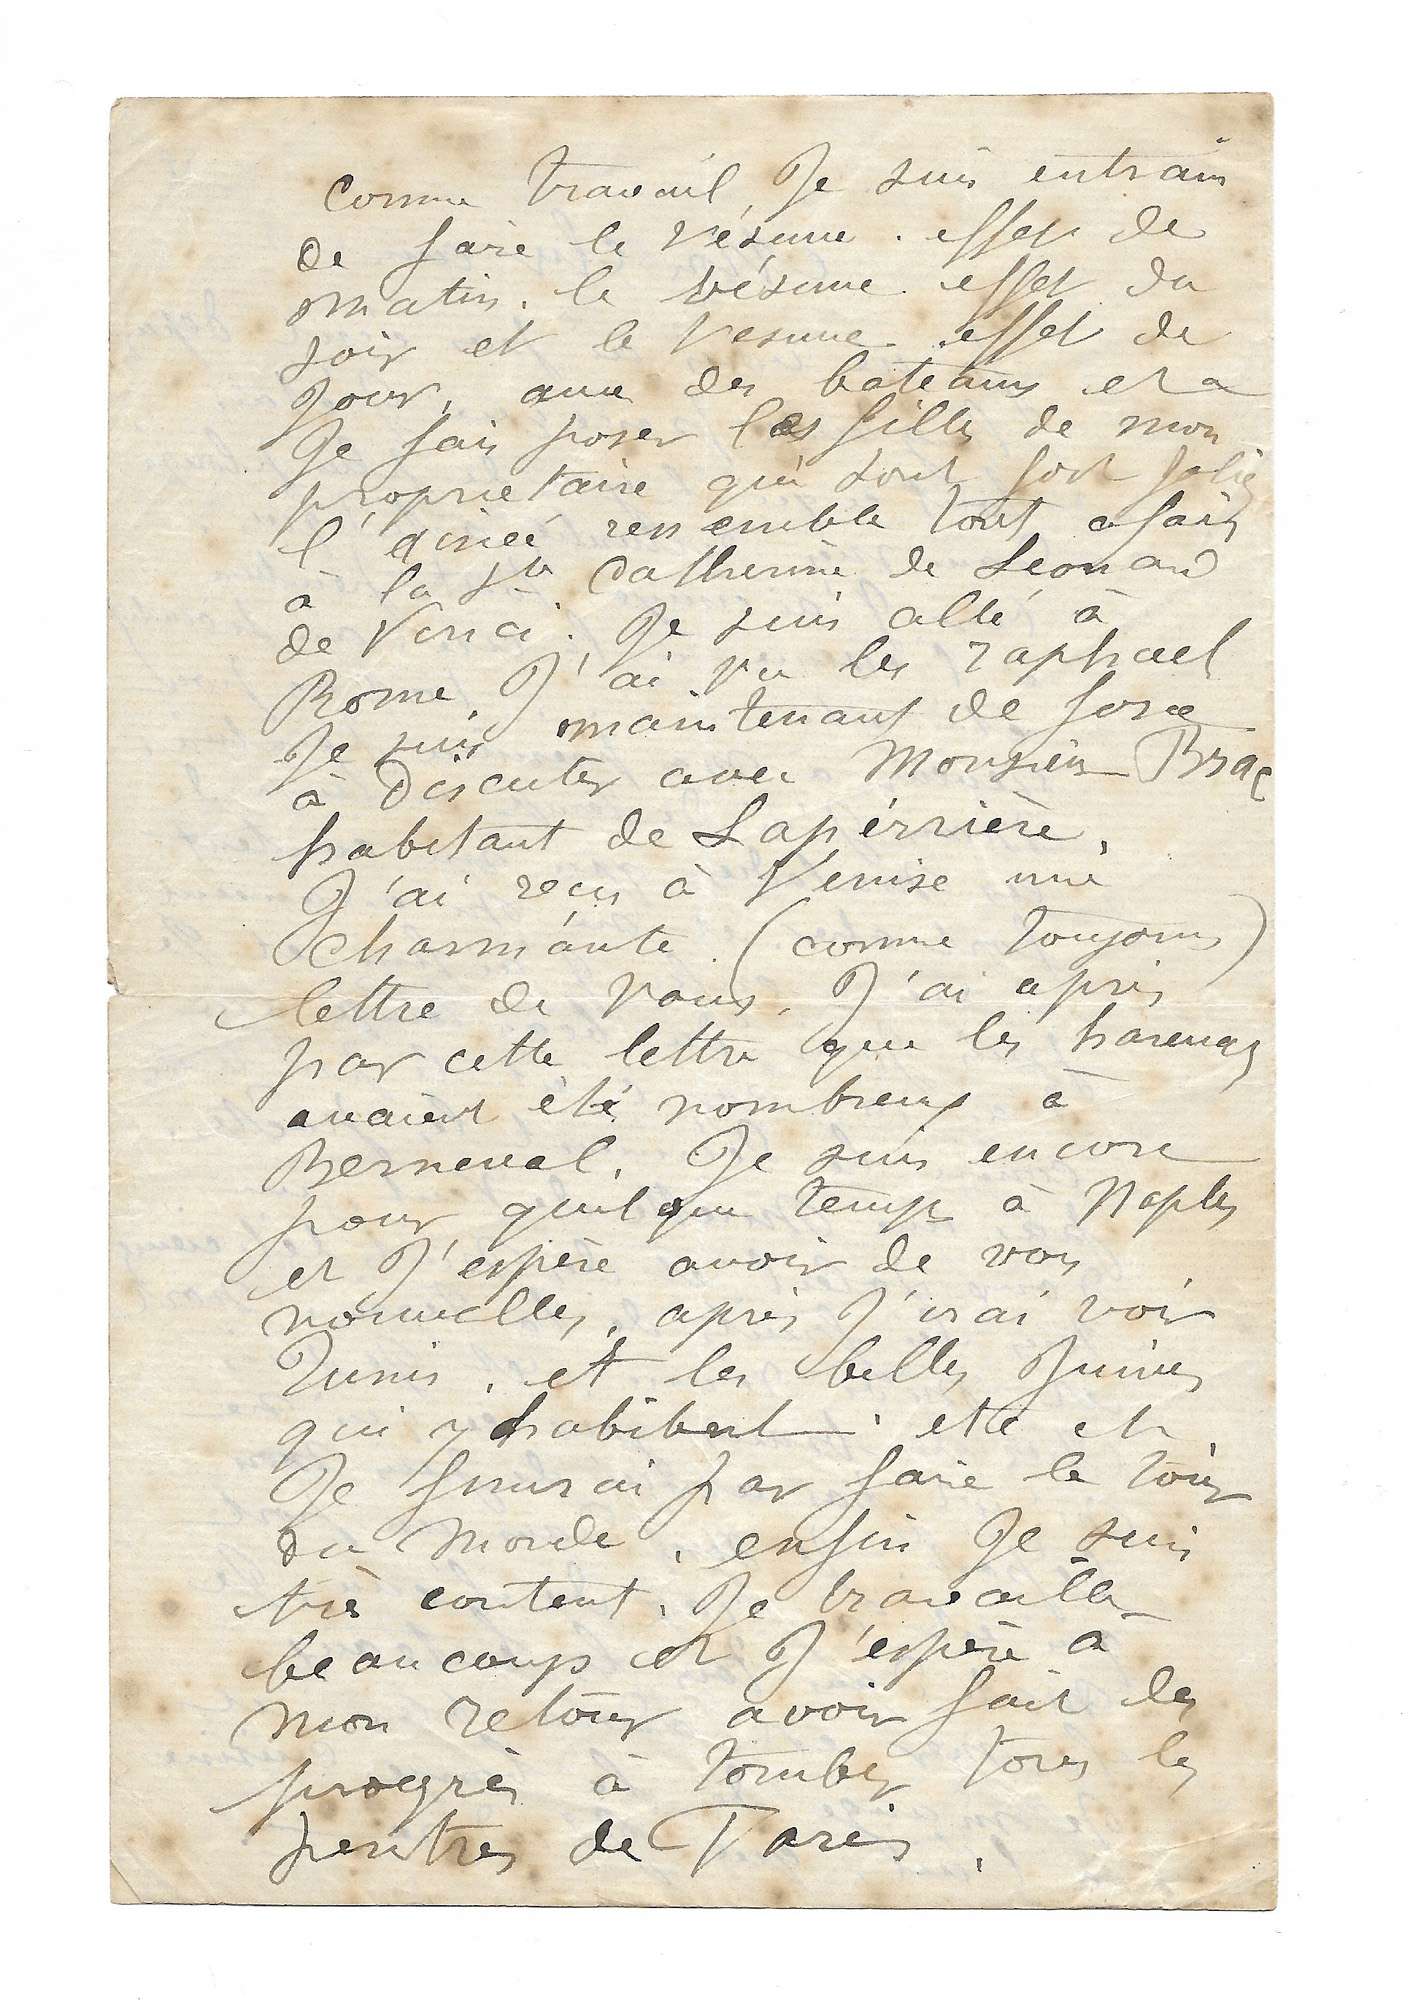 Comme travail, Je suis entrain
de faire le Vésuve. effet de
matin. le vésuve effet du
soir et le vesuve. effet de
Jour, avec des bateaux et a
Je fais poser les filles de mon
proprietaire qui sont fort Jolies
l'ainée ressemble tout afait
à la Ste Catherine de Léonard
de Vinci. Je suis allé à
Rome. J'ai vu les raphael
Je suis maintenant de force
à discuter avec Monsieur Brac
habitant de Lapérrière.
J'ai reçu à Venise une
charmante (comme toujours)
lettre de vous. J'ai apris
par cette lettre que les harengs
avaient été nombreux à
Berneval. Je suis encore
pour quelque temps à Naples
et J'espère avoir de vos
nouvelles. après J'irai voir
Tunis. et les belles Juives
qui y habitent. etc et
Je finirai par faire le tour
du Monde. enfin Je suis
très content. Je travaille
beaucoup et J'espère a
mon retour avoir fait des
progrès à tomber tous les
peintres de Paris.